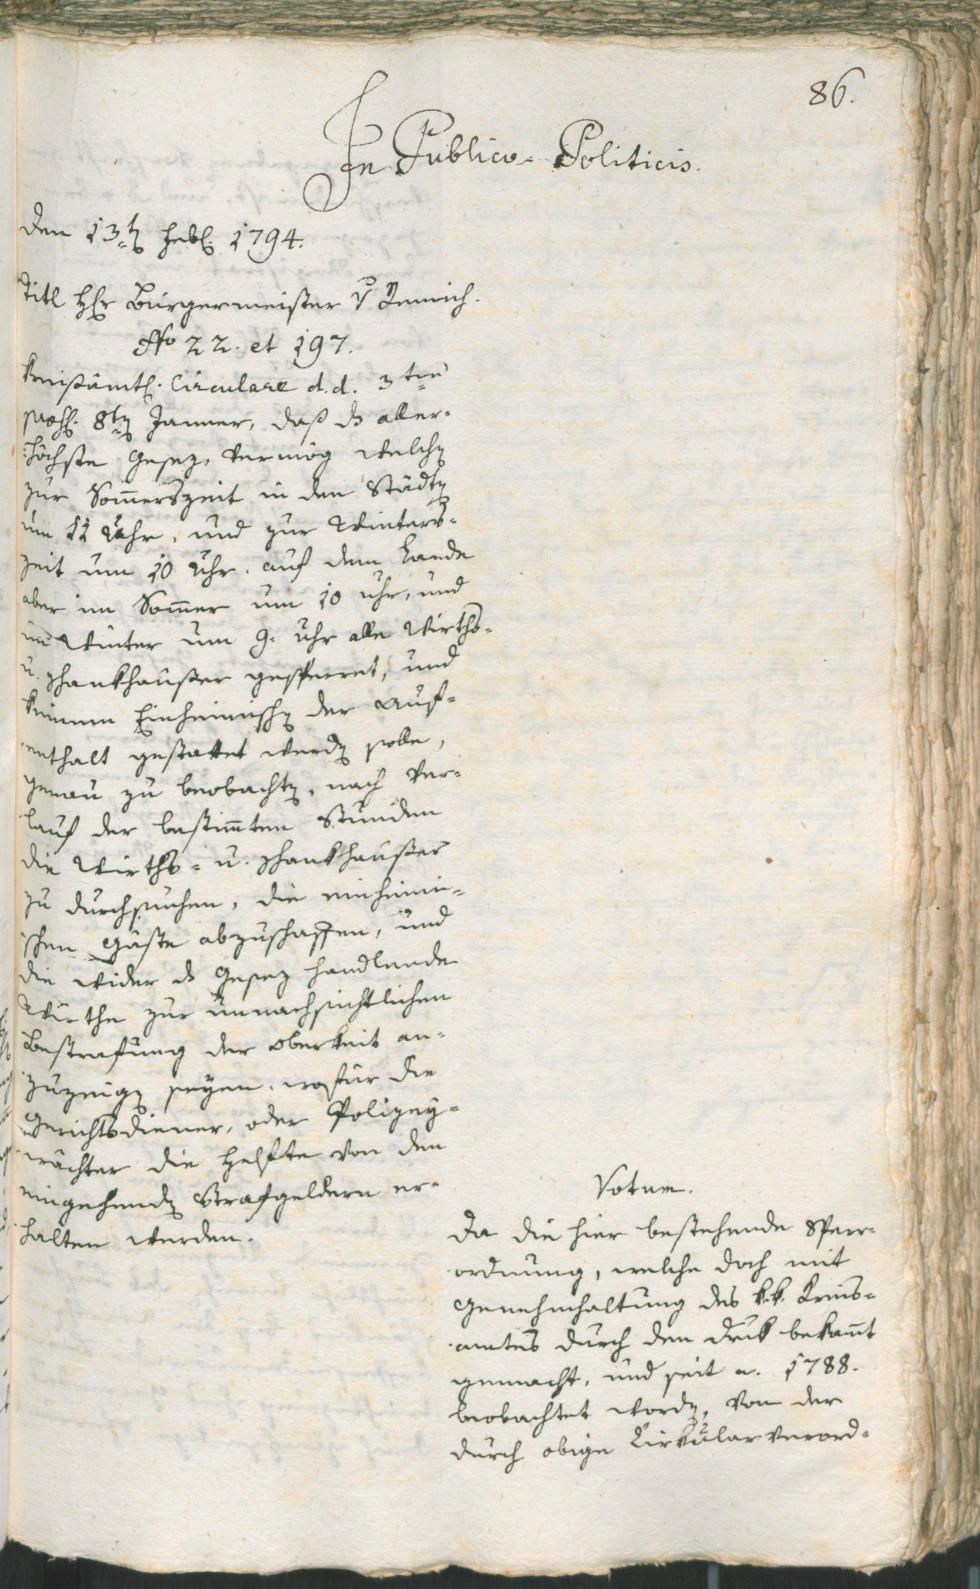 86.
In Publico-Politicis.
Den 13ten Febr. 1794.
Titl Hr Bürgermeister v
No 22. et 197.
Kreißämtl. Circulare d.d. 3ten
praes. 8ten Jänner, daß ds aller-
höchste Gesez, vermög welchen
zur Sommerszeit in den Städten
um 11 Uhr, und zur Winters-
zeit um 10 Uhr. auf dem Lande
aber im Sommer um 10 Uhr, und
im Winter um 9. Uhr alle Wirths-
u. Schankhäußer gesperret, und
keinem Einheimischen der Auf-
enthalt gestattet werden solle,
genau zu beobachten, nach Ver-
lauf der bestimmten Stunden
die Wirths- u. Schankhäußer
zu durchsuchen, die einheimi-
schen Gäste abzuschaffen, und
die wider ds Gesez handlende
Wirthe zur unnachsichtlichen
Bestrafung der Oberkeit an-
zuzeigen seyen, wofür die
Gerichtsdiener, oder Polizey-
wächter die Helfte von den
eingehenden Strafgeldern er-
halten werden.
Votum.
Da die hier bestehende Sperr-
ordnung, welche doch mit
Genehmhaltung des k.k. Kreis-
amtes durch den Druk bekannt
gemacht, und seit a. 1788.
beobachtet worden, von der
durch obige Cirkularverord-